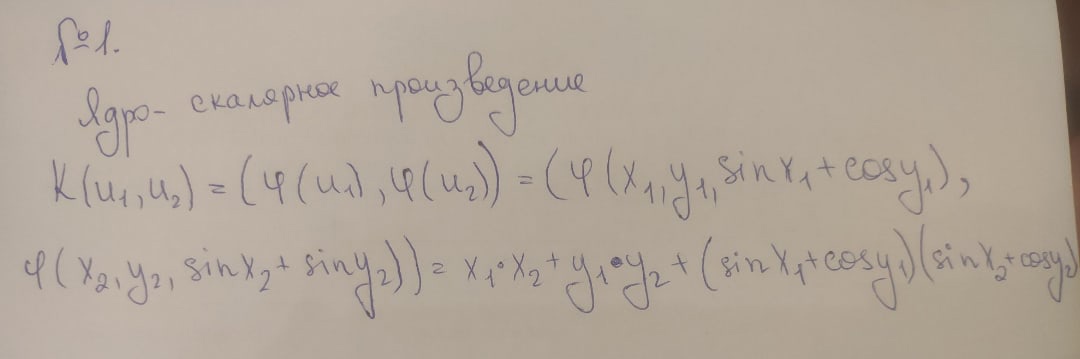 №1.
Ядро - скалярное произведение
K(u₁,u₂) = (φ(u₁), φ(u₂)) = (φ(x₁,y₁,sinx₁+cosy₁),
φ(x₂,y₂,sinx₂+siny₂)) = x₁·x₂+y₁·y₂+(sinx₁+cosy₁)(sinx₂+cosy₂)